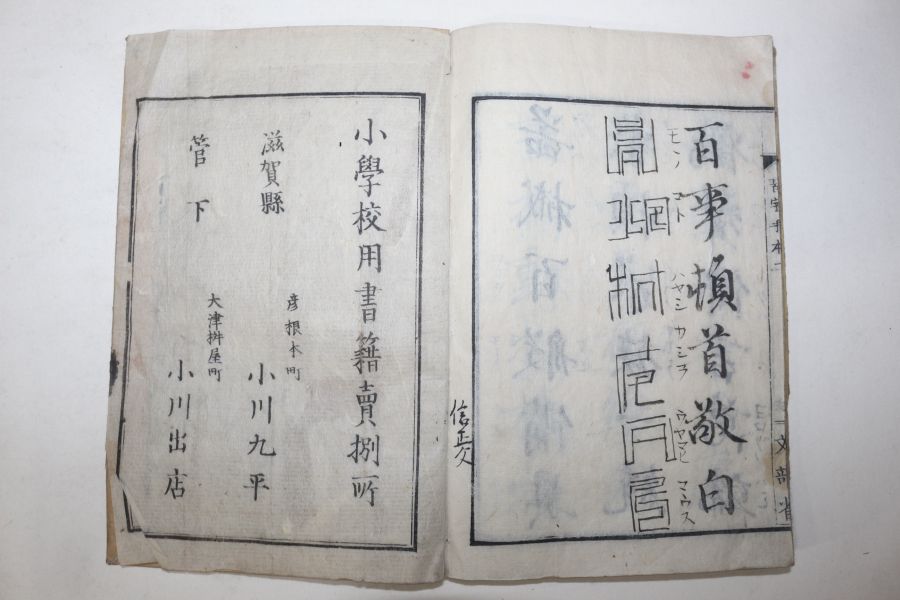 習字手本
文部省
百事頓首敬白
モノ コト ハヤシ カシラ ウヤマヒ マウス
小學校用書籍賣捌所
滋賀縣
管下
彦根本町
小川九平
大津桝屋町
小川出店